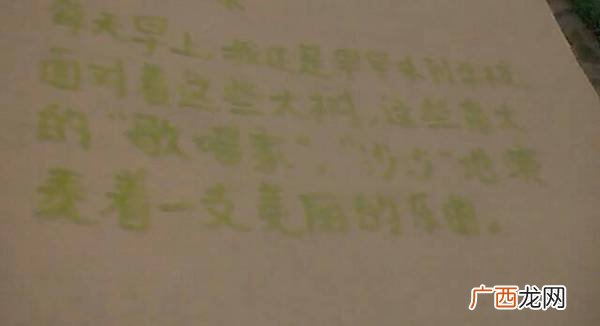 每天早上,我还是早早来到学校
面对着这些大树,这些高大
的“歌唱家”,“沙沙”地演
奏着一支美丽的乐曲。
广西龙网